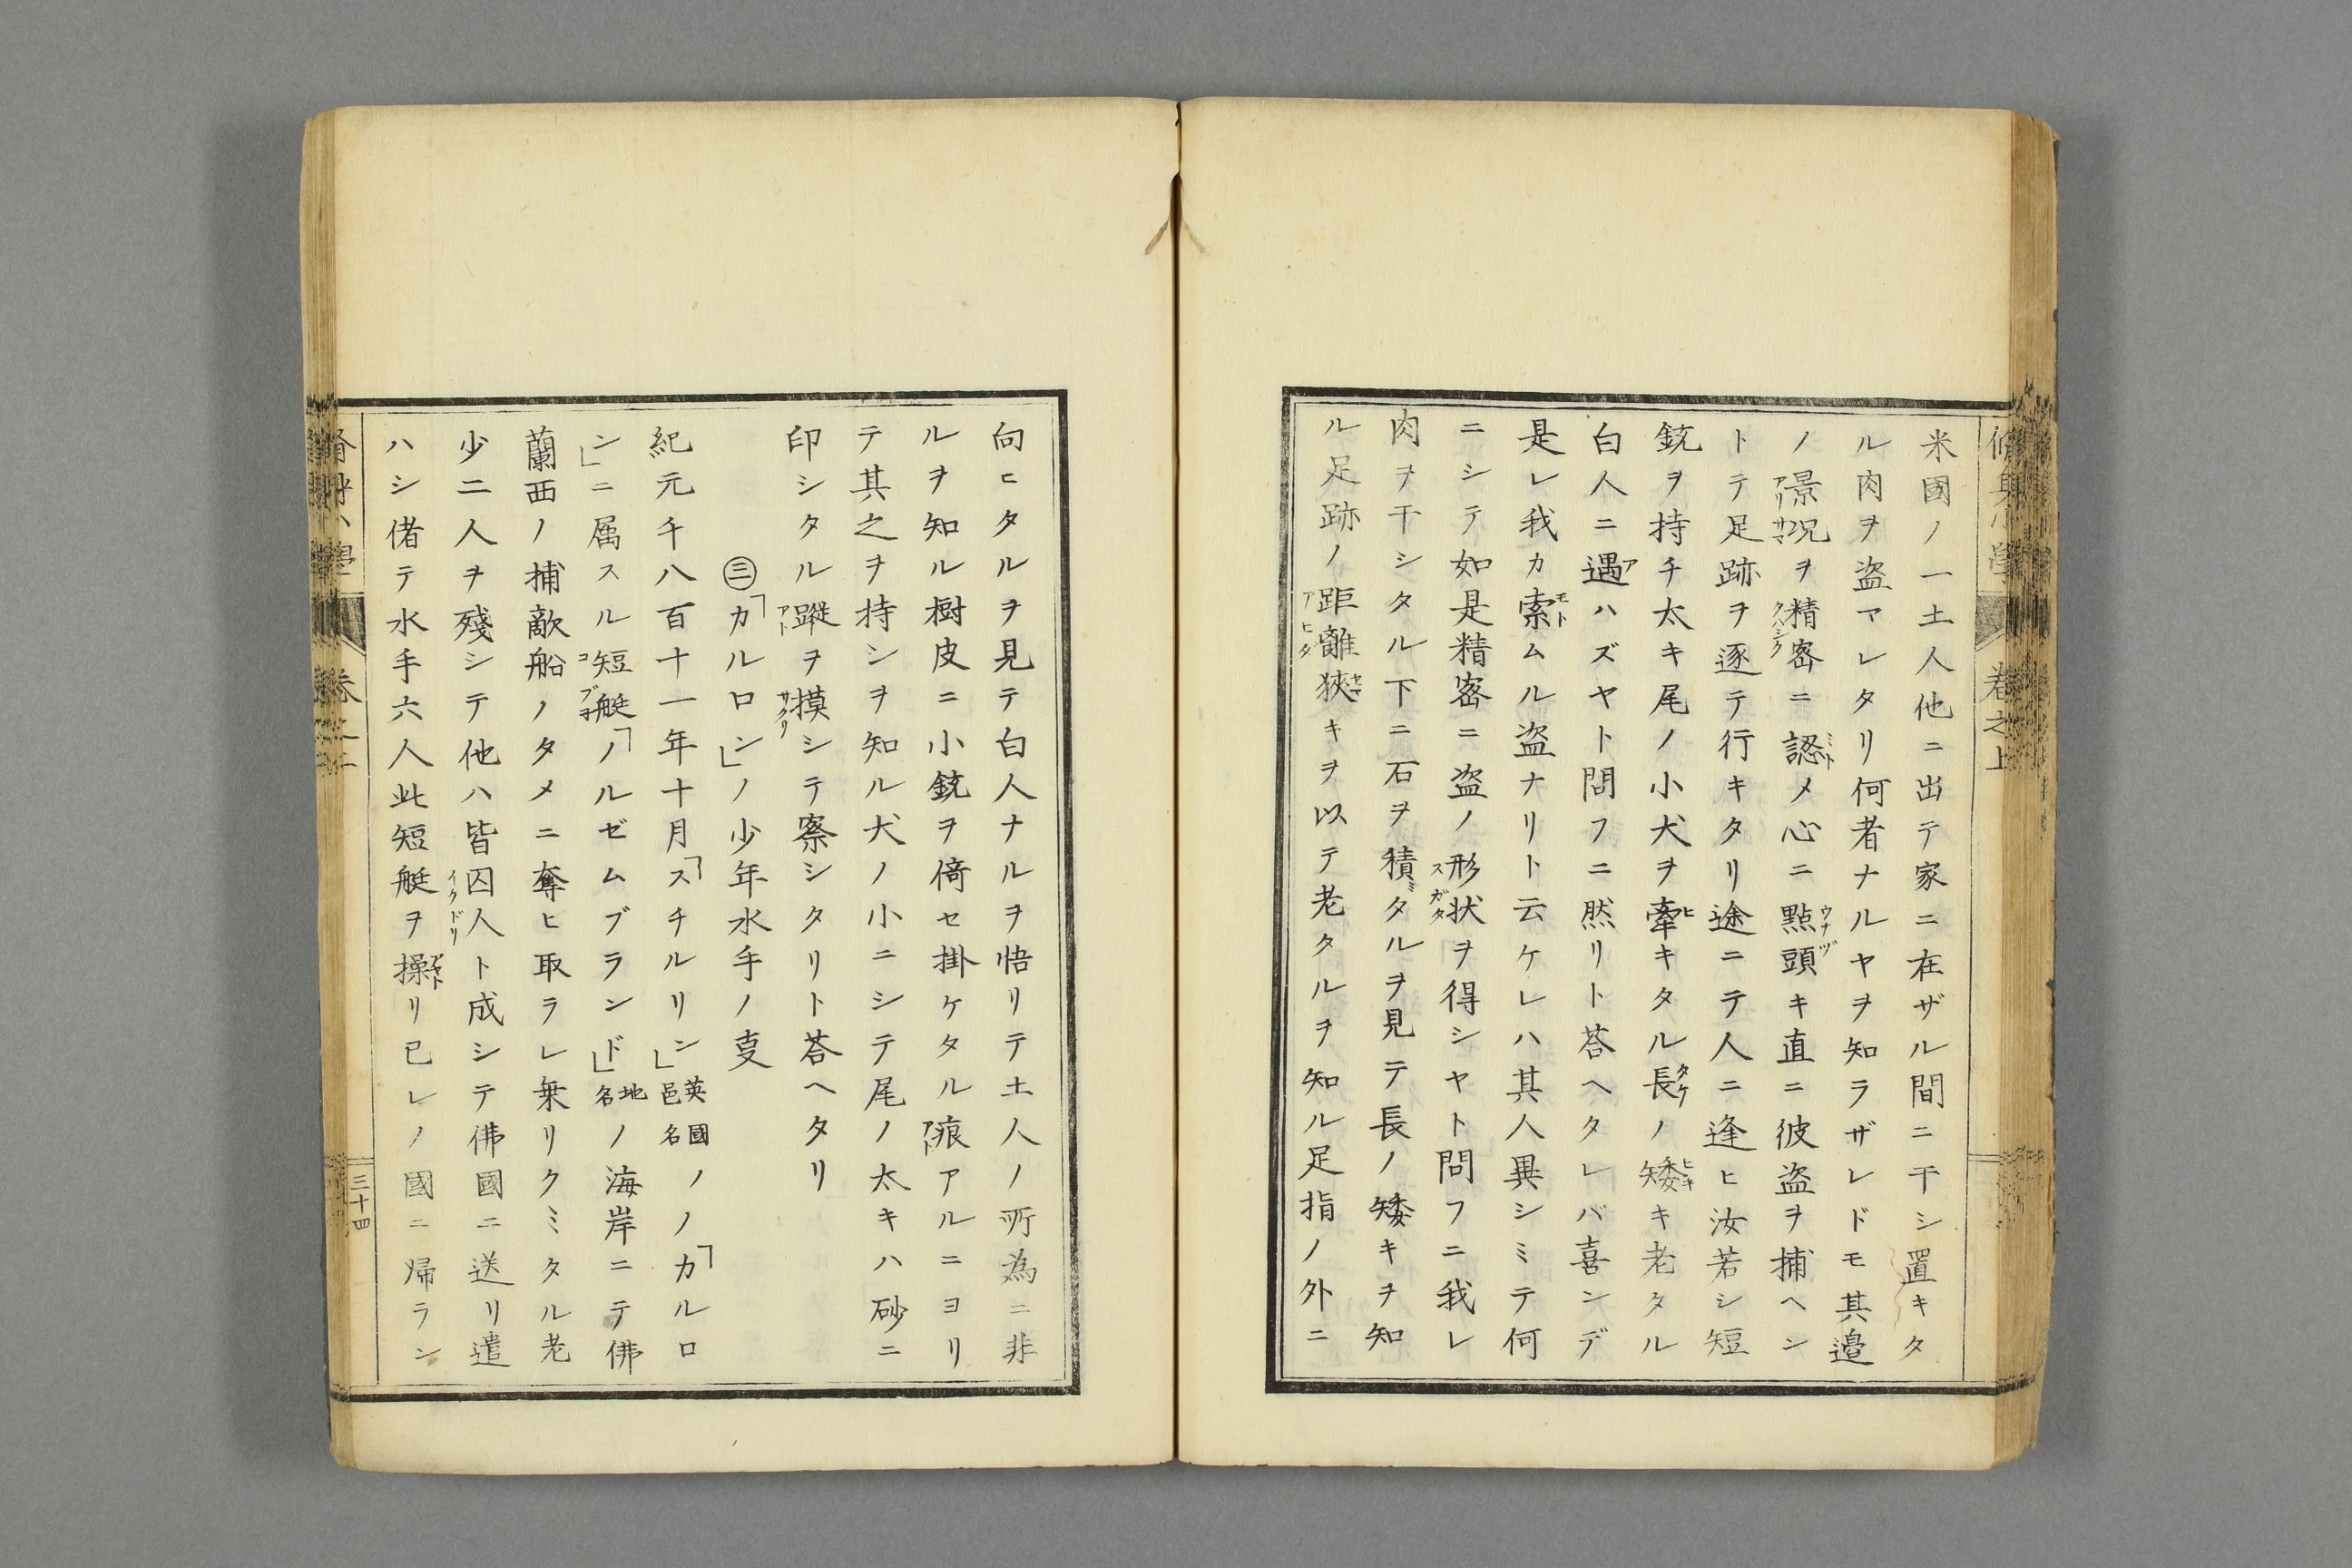 米國ノ一土人他ニ出テ家ニ在ザル間ニ干シ置キタ
ル肉ヲ盗マレタリ何者ナルヤヲ知ラザレドモ其邉
ノ景况ヲ精宻ニ認メ心ニ點頭キ直ニ彼盗ヲ捕ヘン
アリサマ
クハシク
ミト
ウナヅ
トテ足跡ヲ逐テ行キタリ途ニテ人ニ逢ヒ汝若シ短
銃ヲ持チ太キ尾ノ小犬ヲ牽キタル長ノ矮キ老タル
ヒ
タケ
ヒキ
白人ニ遇ハズヤト問フニ然リト荅ヘタレバ喜ンデ
ア
是レ我カ索ムル盗ナリト云ケレハ其人異シミテ何
モト
ニシテ如是精宻ニ盗ノ形状ヲ得シヤト問フニ我レ
スガタ
肉ヲ干シタル下ニ石ヲ積ミタルヲ見テ長ノ矮キヲ知
ル足跡ノ距離狹キヲ以テ老タルヲ知ル足指ノ外ニ
アヒダ
セマ
向ヒタルヲ見テ白人ナルヲ悟リテ土人ノ所為ニ非
ルヲ知ル樹皮ニ小銃ヲ倚セ掛ケタル痕アルニヨリ
アト
テ其之ヲ持シヲ知ル犬ノ小ニシテ尾ノ太キハ砂ニ
印シタル蹤ヲ摸シテ察シタリト荅ヘタリ
アト
サグリ
㊂「カルロン」ノ少年水手ノ叓
紀元千八百十一年十月「スチルリン」英國邑名ノノ「カルロ
ン」ニ属スル短艇「ノルゼムブランド」地名ノ海岸ニテ佛
コブヨ
蘭西ノ捕敵船ノタメニ奪ヒ取ラレ乗リクミタル老
少二人ヲ殘シテ他ハ皆囚人ト成シテ佛國ニ送リ遣
イクドリ
ハシ偖テ水手六人此短艇ヲ操リ已レノ國ニ帰ラン
卷之上
三十四